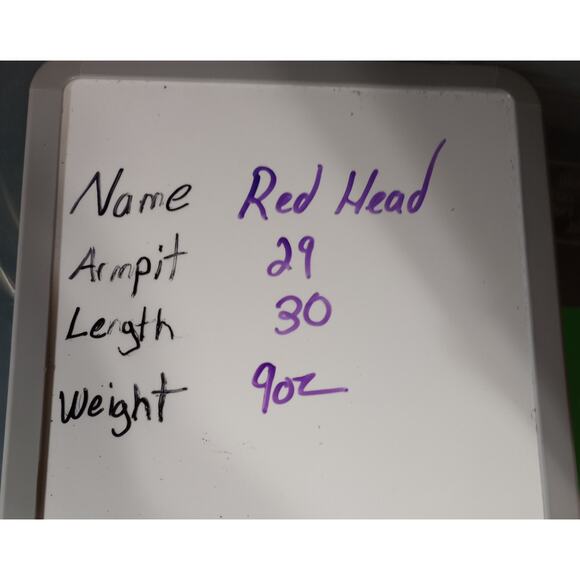 Name Red Head
Armpit 29
Length 30
Weight 9oz